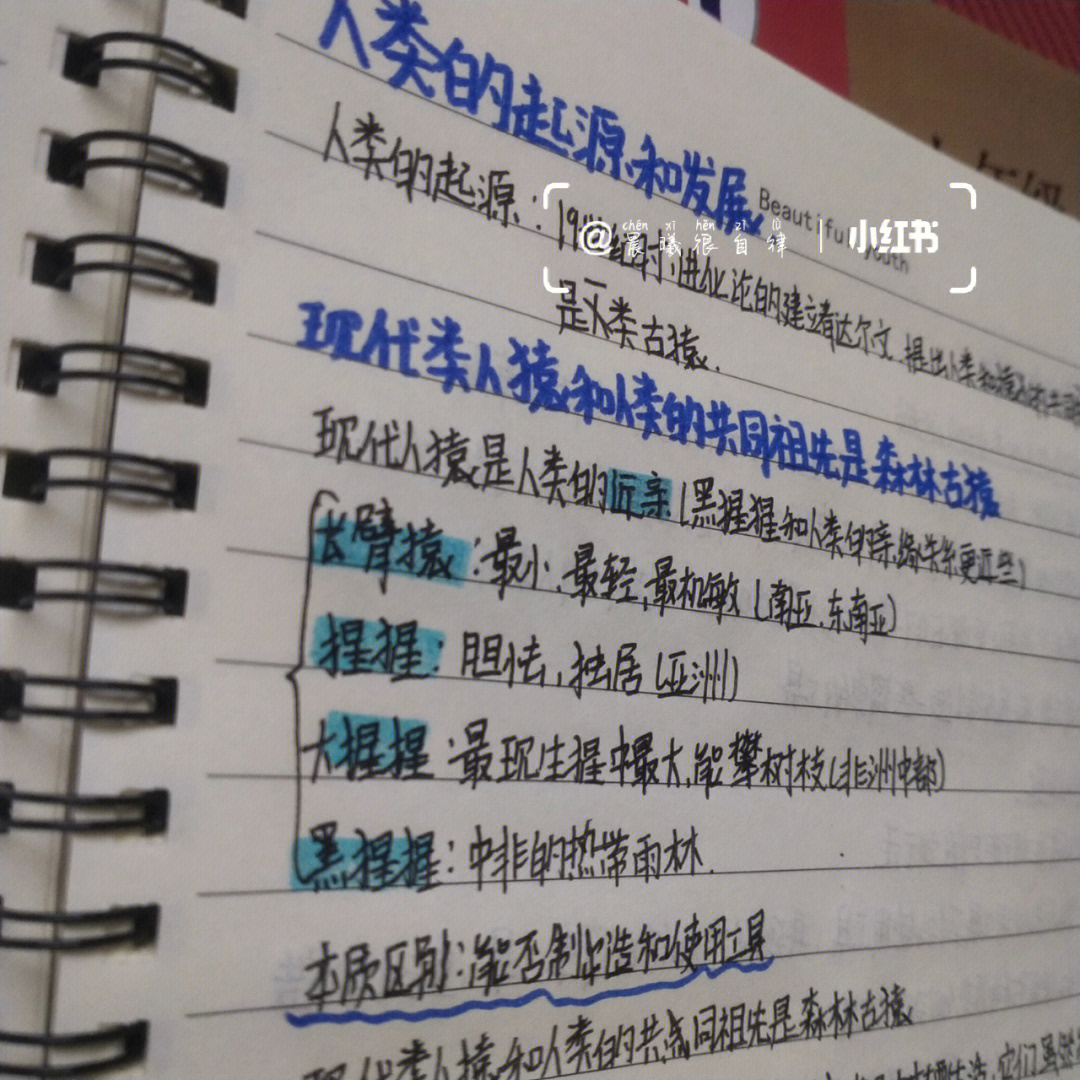 人类的起源和发展
Beautiful Youth
人类的起源:19世纪时,进化论的建立者达尔文,提出人类和
chén xī hěn zì lǜ
@晨曦很自律 | 小红书
是类古猿.
现代类人猿和人类的共同祖先是森林古猿
现代人猿是人类的近亲(黑猩猩和人类的亲缘关系更近些)
长臂猿:最小,最轻,最机敏(南亚,东南亚)
猩猩:胆怯,独居(亚洲)
大猩猩:最现生猩中最大,能攀树枝(非洲中部)
黑猩猩:中非的热带雨林.
本质区别:能否制造和使用工具
现代类人猿和人类的共同祖先是森林古猿
它们虽然